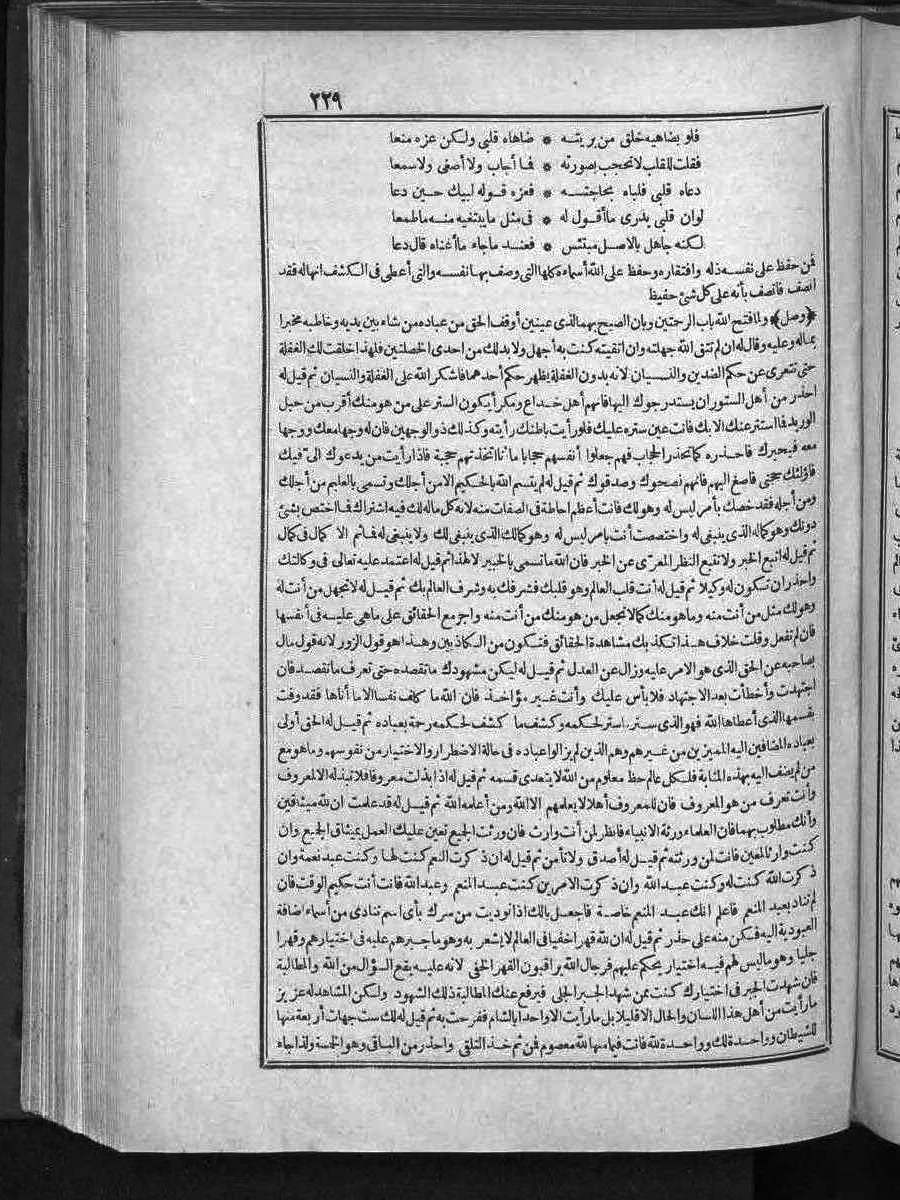 ٢٢٩
فلو يضاهيه خلق من بريتــه * ضاهاه قلبي ولكن عزه منعا
فقلت للقلب لا تحجب بصورته * فما أجاب ولا أصغى ولا سمعا
دعاه قلبي فلباه بحاجتــه * فعزه قوله لبيك حين دعا
لو ان قلبي يدرى ما أقول له * في مثل ما يبتغيه منه ما طمعا
لكنه جاهل بالاصل مبتئس * فعند ما جاء ما أغناه قال دعا
فمن حفظ على نفسه ذله وافتقاره وحفظ على الله أسماءه كلها التي وصف بها نفسه والتي أعطى في الكشف انها له فقد
انصف فاتصف بأنه على كل شئ حفيظ
﴿وصل﴾ ولما فتح الله باب الرحمتين وبان الصبح بهما لذى عينين أوقف الحق من عباده من شاء بين يديه وخاطبه مخبرا
بما له وعليه وقال له ان لم تتق الله جهلته وان اتقيته كنت به أجهل ولا بد لك من احدى الخصلتين فلهذا خلقت لك الغفلة
حتى تتعرى عن حكم الضدين والنسيان لانه بدون الغفلة يظهر حكم أحدهما فاشكر الله على الغفلة والنسيان ثم قيل له
احذر من أهل الستور ان يستدرجوك اليها فانهم أهل خداع ومكر أيكون الستر على من هو منك أقرب من حبل
الوريد فما استتر عنك الا بك فانت عين ستره عليك فلو رأيت باطنك رأيته وكذلك ذو الوجهين فان له وجها معك ووجها
معه فيحيرك فاحذره كما تحذر الحجاب فهم جعلوا أنفسهم حجابا ما أنا اتخذتهم حجبة فاذا رأيت من يدعوك الىّ فيك
فاولئك حجبتى فاصغ اليهم فانهم نصحوك وصدقوك ثم قيل له لم يقسم الله بالحكيم الا من أجلك وتسمى بالعليم من أجلك
ومن أجله فقد خصك بأمر ليس له وهو لك فانت أعظم احاطة في الصفات منه لانه كل ماله لك فيه اشتراك فما اختص بشئ
دونك وهو كماله الذى ينبغي له واختصصت أنت بامر ليس له وهو كمالك الذى ينبغي لك ولا ينبغي له فما ثم الا كمال في كمال
ثم قيل له اتبع الخبر ولا تتبع النظر المعرّى عن الخبر فان الله ما تسمى بالخبير الا لهذا ثم قيل له اعتمد عليه تعالى في وكالتك
واحذر ان تكون له وكيلا ثم قيل له أنت قلب العالم وهو قلبك فشرفك به وشرف العالم بك ثم قيل له لا تجهل من أنت له
وهو لك مثل من أنت منه وما هو منك كما لا تجعل من هو منك من أنت منه واجر مع الحقائق على ماهى عليه في أنفسها
فان لم تفعل وقلت خلاف هذا تكذبك مشاهدة الحقائق فتكون من الكاذبين وهذا هو قول الزور لانه قول مال
بصاحبه عن الحق الذى هو الامر عليه وزال عن العدل ثم قيل له ليكن مشهودك ما تقصده حتى تعرف ما تقصد فان
اجتهدت وأخطأت بعد الاجتهاد فلا بأس عليك وأنت غير مؤاخذ فان الله ما كلف نفسا الا ما أتاها فقد وفت
بقسمها الذى أعطاها الله فهو الذى ستر ما ستر لحكمه وكشف ما كشف لحكمه رحمة بعباده ثم قيل له الحق أولى
بعباده المضافين اليه المميزين من غيرهم وهم الذين لم يزالوا عباده في حالة الاضطرار والاختيار من نفوسهم وما هو مع
من لم يضف اليه بهذه المثابة فلكل عالم حظ معلوم من الله لا يتعدى قسمه ثم قيل له اذا بذلت معروفا فلا تبذله الا لمعروف
وأنت تعرف من هو المعروف فان للمعروف أهلا لا يعلمهم الا الله ومن أعلمه الله ثم قيل له قد علمت ان لله ميثاقين
وأنك مطلوب بهما فان العلماء ورثة الانبياء فانظر لمن أنت وارث فان ورثت الجميع تعين عليك العمل بميثاق الجميع وان
كنت وارثا لمعين فانت لمن ورثته ثم قيل له أصدق ولا تأمن ثم قيل له ان ذكرت النعم كنت لها وكنت عبد نعمه وان
ذكرت الله كنت له وكنت عبد الله وان ذكرت الامرين كنت عبد المنعم وعبد الله فانت أنت حكيم الوقت فان
لم تناد بعبد المنعم فاعلم انك عبد المنعم خاصة فاجعل بالك اذا نوديت من سرك بأى اسم تنادى من أسماء اضافة
العبودية اليه فكن منه على حذر ثم قيل له ان لله قهرا خفيا في العالم لا يشعر به وهو ما جبرهم عليه في اختيارهم وقهرا
جليا وهو ما ليس لهم فيه اختيار يحكم عليهم فرجال الله يراقبون القهر الخفى لانه عليه يقع السؤال من الله والمطالبة
فان شهدت الجبر في اختيارك كنت ممن شهد الجبر الجلى فيرفع عنك المطالبة ذلك الشهود ولكن المشاهد له عزيز
ما رأيت من أهل هذا اللسان والحال الا قليلا بل ما رأيت الا واحدا بالشام ففرحت به ثم قيل له لك ست جهات أربعة منها
للشيطان وواحدة لك وواحدة لله فانت فيما منها لله معصوم فمن ثم خذ التلقي واحذر من الباقى وهو الخمسة ولذا جاء